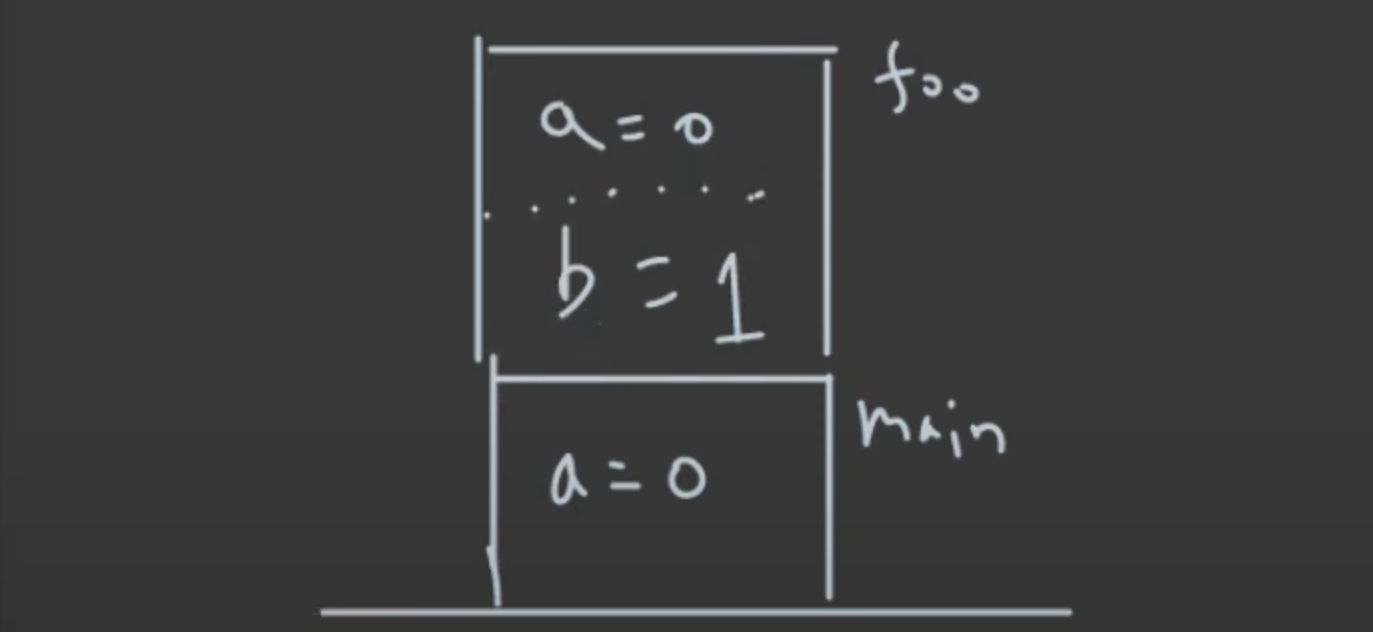 foo
a = 0
b = 1
main
a = 0